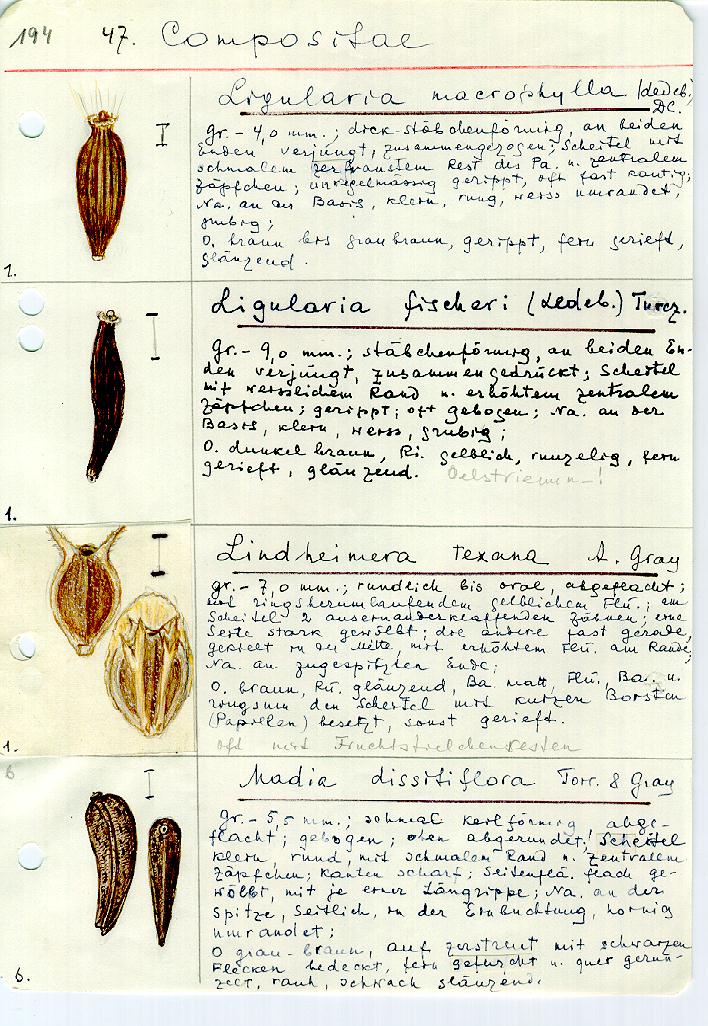 194 47. Compositae
Ligularia macrophylla (Ledeb.)
DC.
gr.- 4,0 mm.; dick-stäbchenförmig, an beiden
Enden verjüngt, zusammengezogen; Scheitel mit
schmalem zerfranstem Rest des Pa. u. zentralem
Zäpfchen; unregelmässig gerippt, oft fast kantig;
Na. an der Basis, klein, rund, weiss umrandet,
grubig;
O. braun bis graubraun, gerippt, fein gerieft,
glänzend.
1.
Ligularia fischeri (Ledeb.) Turcz.
gr.- 9,0 mm.; stäbchenförmig, an beiden En-
den verjüngt, zusammengedrückt; Scheitel
mit weisslichem Rand u. erhöhtem zentralem
Zäpfchen; gerippt; oft gebogen; Na. an der
Basis, klein, weiss, grubig;
O. dunkelbraun, Ri. gelblich, runzelig, fein
gerieft, glänzend. Oelstriemen-!
1.
Lindheimera texana A. Gray
gr.- 7,0 mm.; rundlich bis oval, abgeflacht;
mit ringsherumlaufendem gelblichem Flü.; am
Scheitel 2 auseinanderklaffenden Zähnen; eine
Seite stark gewölbt; die andere fast gerade,
gekielt in der Mitte, mit erhöhtem Flü. am Rande;
Na. am zugespitzten Ende;
O. braun, Rü. glänzend, Ba. matt, Flü., Ba. u.
ringsum den Scheitel mit kurzen Borsten
(Papillen) besetzt, sonst gerieft.
oft mit Fruchtstielchenresten
1.
6
Madia dissitiflora Torr. & Gray
gr.- 5,5 mm.; schmal keilförmig abge-
flacht; gebogen; oben abgerundet; Scheitel
klein, rund, mit schmalem Rand u. zentralem
Zäpfchen; Kanten scharf; Seitenflä. flach ge-
wölbt, mit je einer Längrippe; Na. an der
Spitze, seitlich, in der Einbuchtung, hornig
umrandet;
O grau-braun, auf zerstreut mit schwarzen
Flecken bedeckt, fein gefurcht u. quer gerun-
zelt, rauh, schwach glänzend.
6.